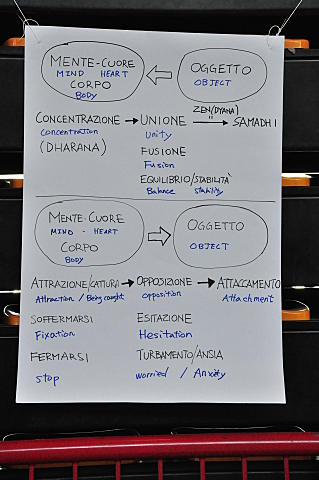 MENTE-CUORE
MIND HEART
CORPO
BODY
OGGETTO
OBJECT
ZEN/(DYANA)
"
CONCENTRAZIONE → UNIONE → SAMADHI
concentration Unity
(DHARANA) FUSIONE
Fusion
EQUILIBRIO/STABILITÀ
Balance stability
MENTE-CUORE
MIND - HEART
CORPO
Body
OGGETTO
OBJECT
ATTRAZIONE/CATTURA → OPPOSIZIONE → ATTACCAMENTO
Attraction / Being caught opposition Attachment
SOFFERMARSI ESITAZIONE
Fixation Hesitation
FERMARSI TURBAMENTO/ANSIA
stop worried / Anxiety